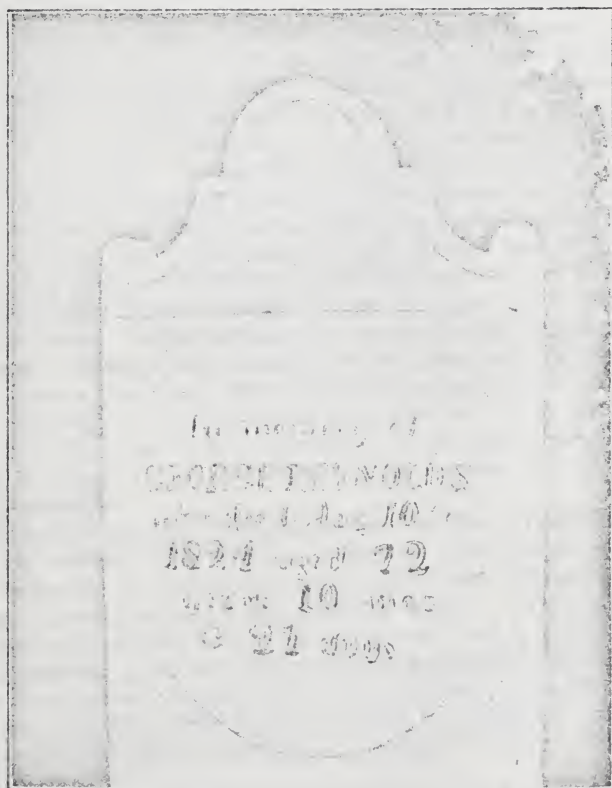 In memory of
GEORGE REYNOLDS
who died Aug 10th
1824 aged 72
years 10 mos
& 21 days